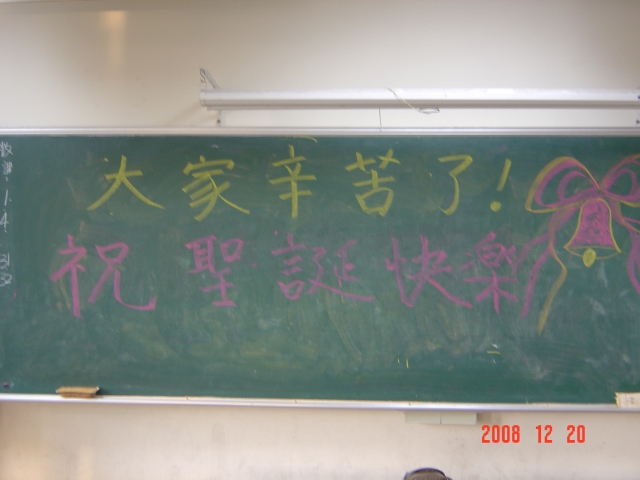 大家辛苦了!
祝聖誕快樂
2008 12 20